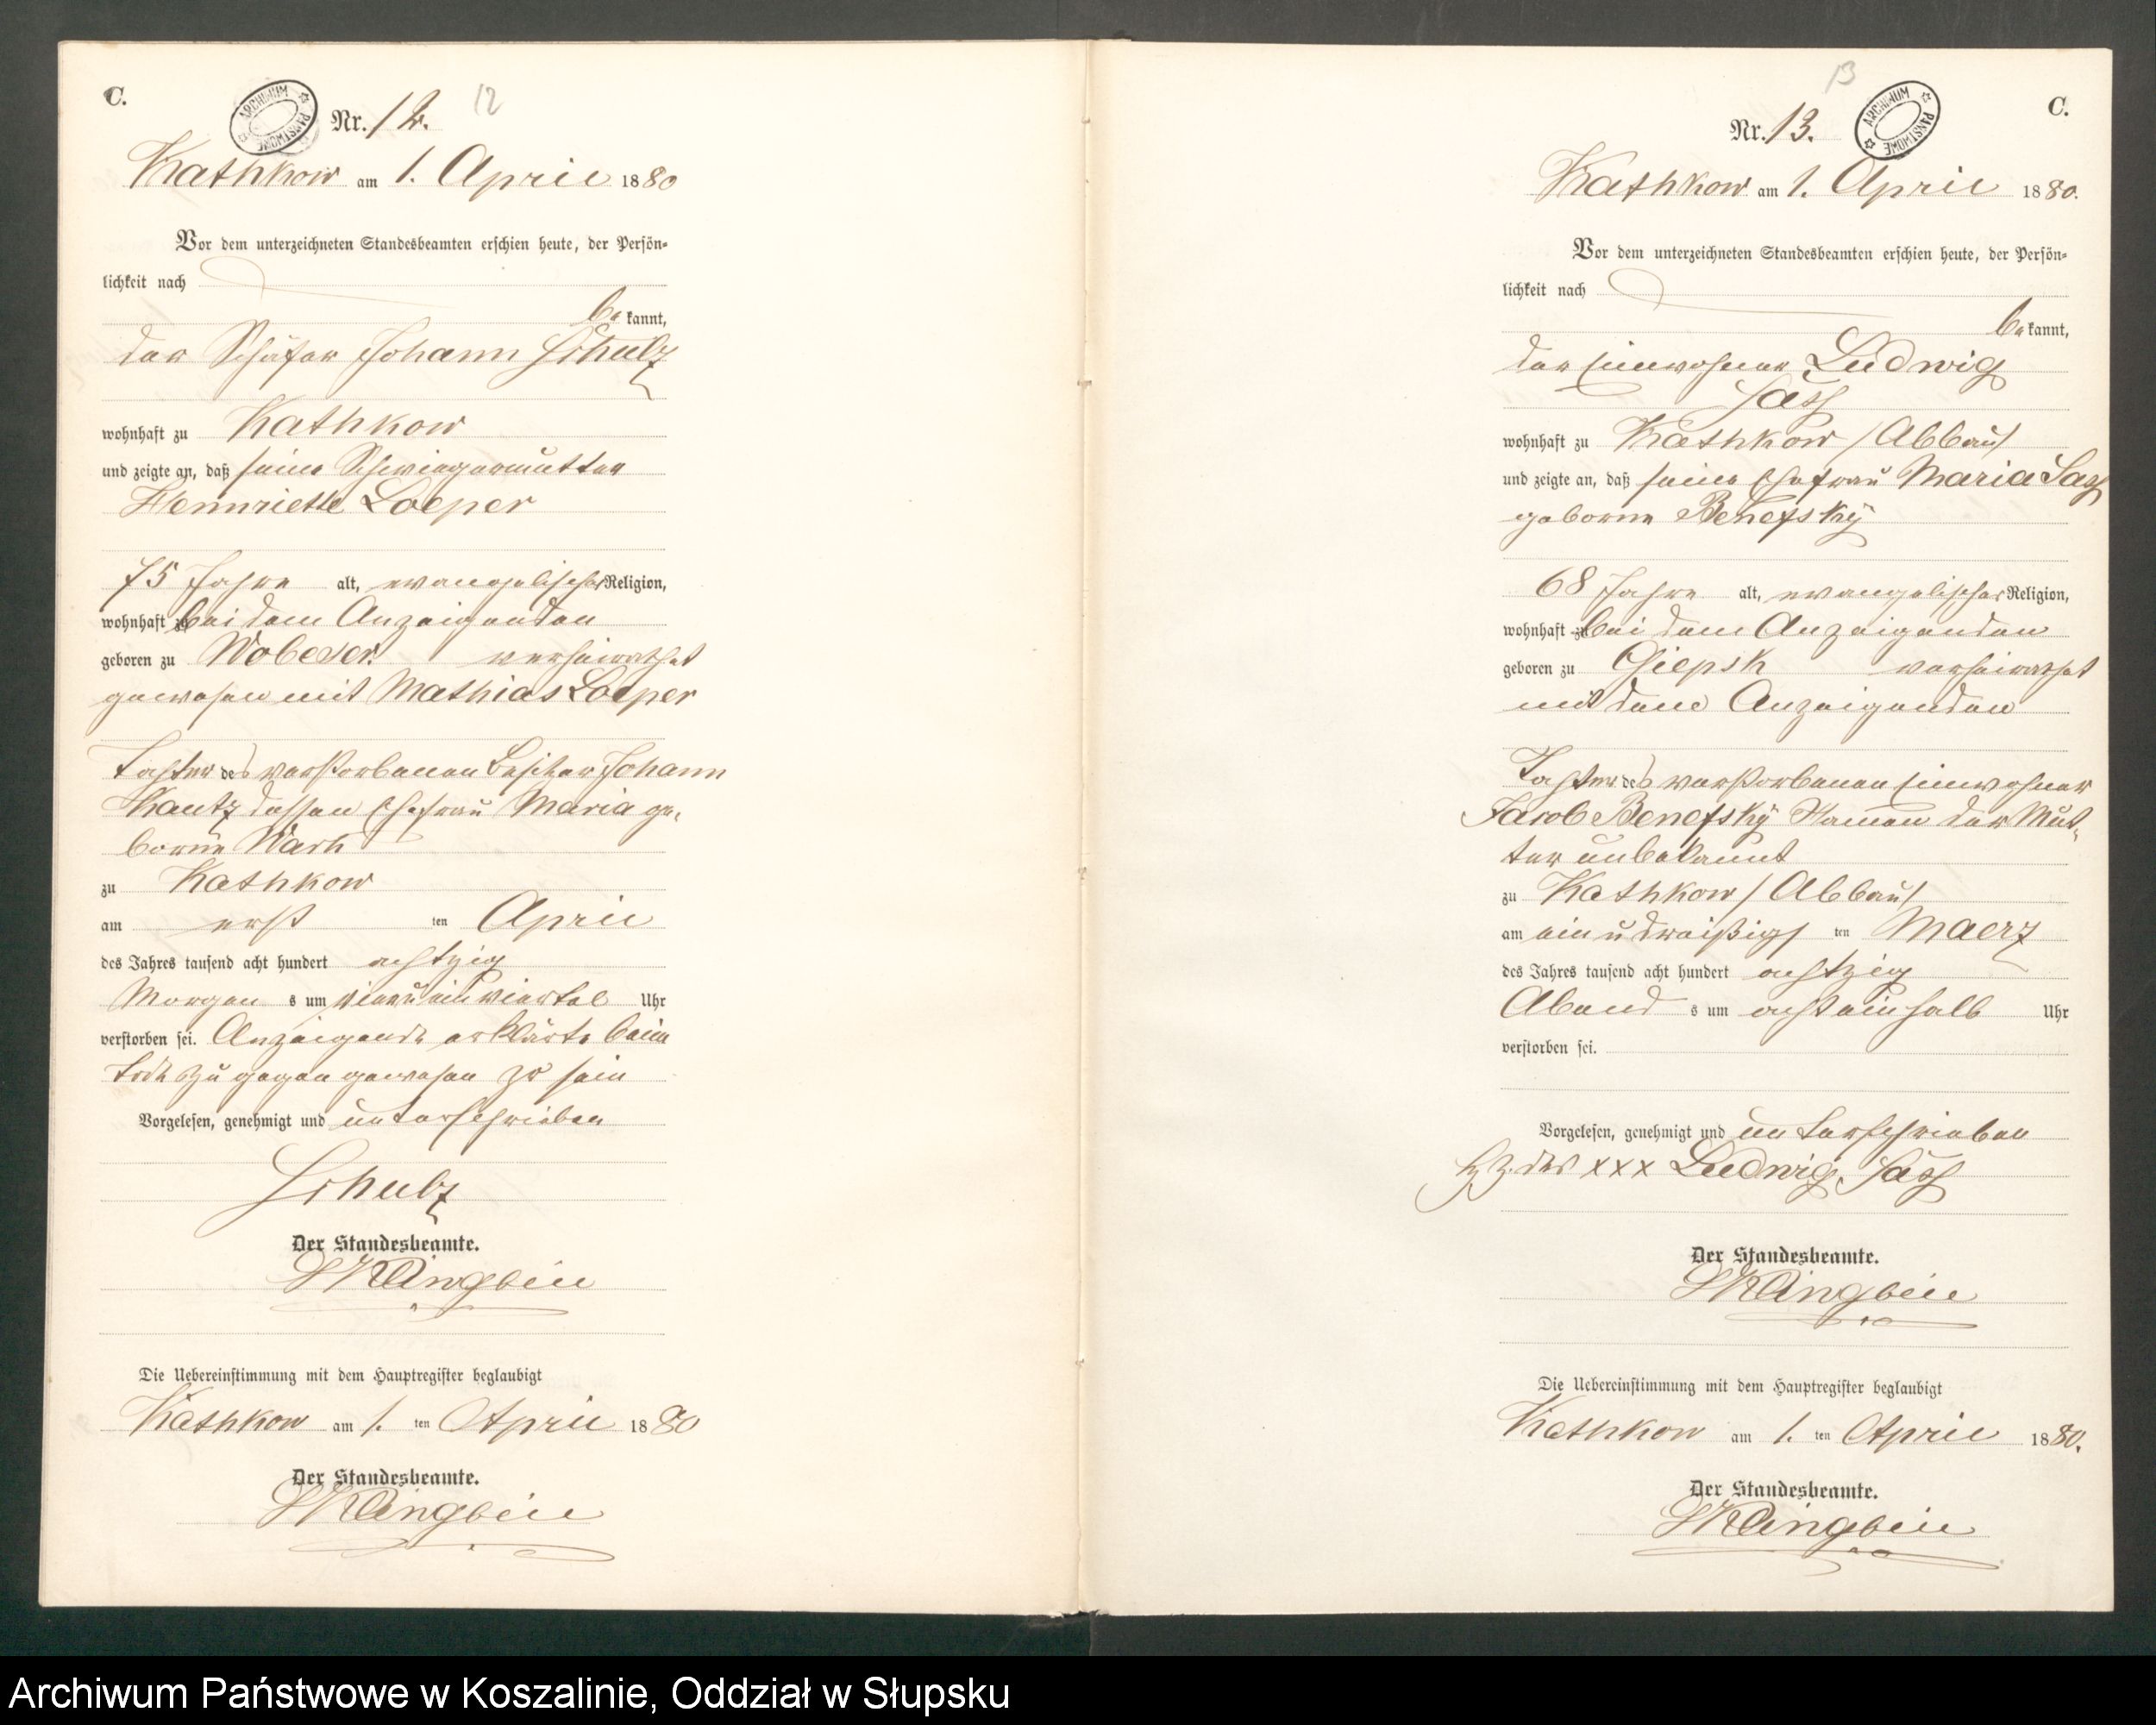 C.
ARCHIWUM PAŃSTWOWE
Nr. 12. 12
Kathkow am 1. April 1880
Vor dem unterzeichneten Standesbeamten erschien heute, der Persön-
lichkeit nach
be kannt,
der Schäfer Johann Schulz
wohnhaft zu Kathkow
und zeigte an, daß seine Schwiegermutter
Hennriette Loeper
75 Jahre alt, evangelischer Religion,
wohnhaft bei dem Anzeigenden
geboren zu Wobeser verheirathet
gewesen mit Mathias Loeper
Tochter des verstorbenen Besitzer Johann
Kautz dessen Ehefrau Maria ge-
borne
zu Kathkow
am erst ten April
des Jahres tausend acht hundert achtzig
Morgen s um vier u ein viertel Uhr
verstorben sei. Anzeigende erklärte beim
Tode zu gegen gewesen zu sein
Vorgelesen, genehmigt und unterschrieben
Schulz
Der Standesbeamte.
Die Uebereinstimmung mit dem Hauptregister beglaubigt
Kathkow am 1. ten April 1880
Der Standesbeamte.
13
Nr. 13. C.
ARCHIWUM PAŃSTWOWE
Kathkow am 1. April 1880.
Vor dem unterzeichneten Standesbeamten erschien heute, der Persön-
lichkeit nach
be kannt,
der Einwohner Ludwig
Sass
wohnhaft zu Kathkow /Abbau/
und zeigte an, daß seine Ehefrau Maria Sass
geborne Benefsky
68 Jahre alt, evangelischer Religion,
wohnhaft zu bei dem Anzeigenden
geboren zu Giepsh verheirathet
mit dem Anzeigenden
Tochter des verstorbenen Einwohner
Jacob Benefsky Namen der Mut-
ter unbekannt
zu Kathkow /Abbau/
am ein u dreißigs ten Maerz
des Jahres tausend acht hundert achtzig
Abend s um acht ein halb Uhr
verstorben sei.
Vorgelesen, genehmigt und unterschrieben
Hz. des xxx Ludwig Sass
Der Standesbeamte.
Die Uebereinstimmung mit dem Hauptregister beglaubigt
Kathkow am 1. ten April 1880.
Der Standesbeamte.
Archiwum Państwowe w Koszalinie, Oddział w Słupsku